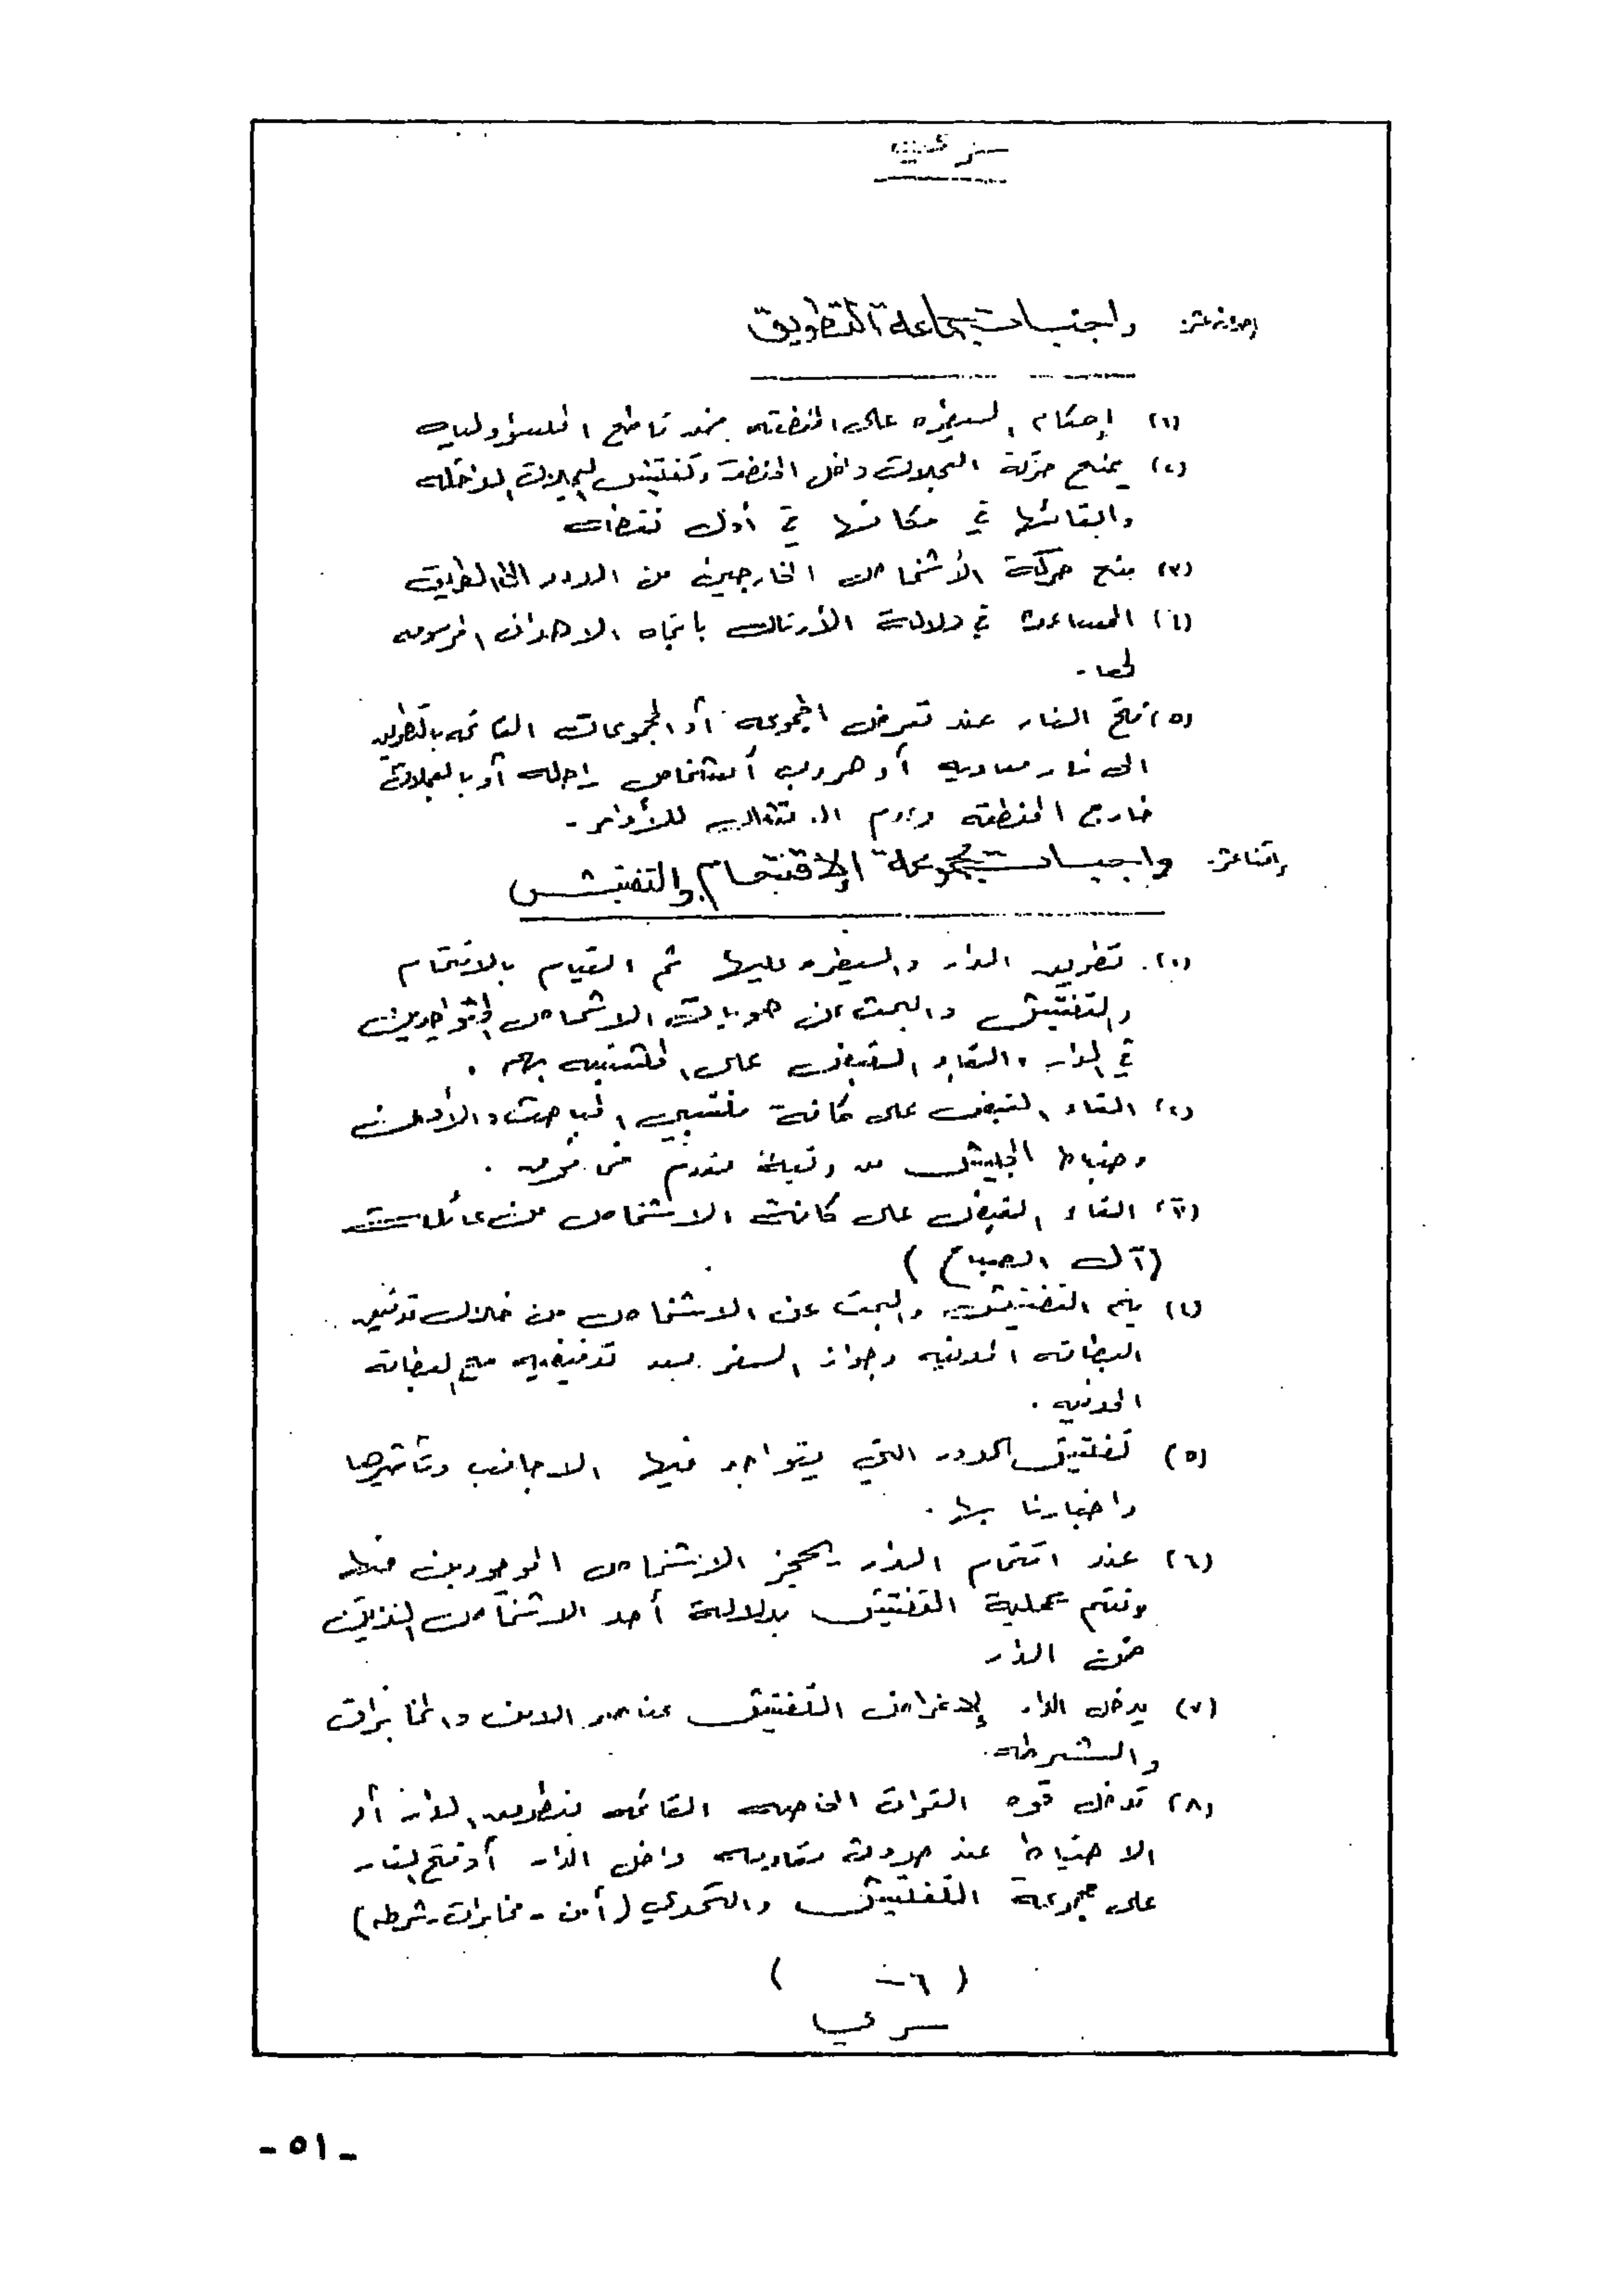 سري
احدى عشر: واجبات جماعة التطويق
(١) إحكام السيطره على المنطقه ضمن قاطع المسؤوليه
(٢) يمنع حركة العجلات داخل المنطقة وتفتيش العجلات الداخله
وابقائها في مكانها في أول نقطه
(٣) منع حركة الأشخاص الخارجين من الدور الى الطريق
(٤) المساعدة في دلالة الأرتال باتجاه الاهداف المرسومه
لها.
(٥) فتح النار عند تعرض المجموعه أو المجموعات القائمه بالتطويق
الى نار معاديه أو هروب أشخاص راجله أو بالعجلات
خارج المنطقه وعدم الامتثال للأوامر.
اثنا عشر: واجبات مجموعة الاقتحام والتفتيش
(١) تطويق الدار والسيطره عليها ثم القيام بالاقتحام
والتفتيش والبحث عن هويات الاشخاص المتواجدين
في الدار والقاء القبض على المشتبه بهم.
(٢) القاء القبض على كافة منتسبي المباحث والأمن
وضباط الجيش من رتبة مقدم فما فوق.
(٣) القاء القبض على كافة الاشخاص من عائلات
(آل الصباح)
(٤) يتم التفتيش والبحث عن الاشخاص من خلال تدقيق
البطاقه المدنيه وجواز السفر بعد تدقيقه مع البطاقه
المدنيه.
(٥) تفتيش الدور التي يتواجد فيها الاجانب وتأشيرها
واخبارنا بها.
(٦) عند اقتحام الدار يحجز الاشخاص الموجودين فيها
وتتم عملية التفتيش بدلالة أحد الاشخاص
ضمن الدار
(٧) يدخل الدار لاغراض التفتيش عناصر الامن والمخابرات
والشرطه.
(٨) تدخل قوه القوات الخاصه القائمه بتطويق الدار أو
الاحتياط عند حدوث مقاومه داخل الدار أو فتح النار
على مجموعة التفتيش والتحري (أمن - مخابرات - شرطه)
( ٦ - )
سري
- ٥١ -